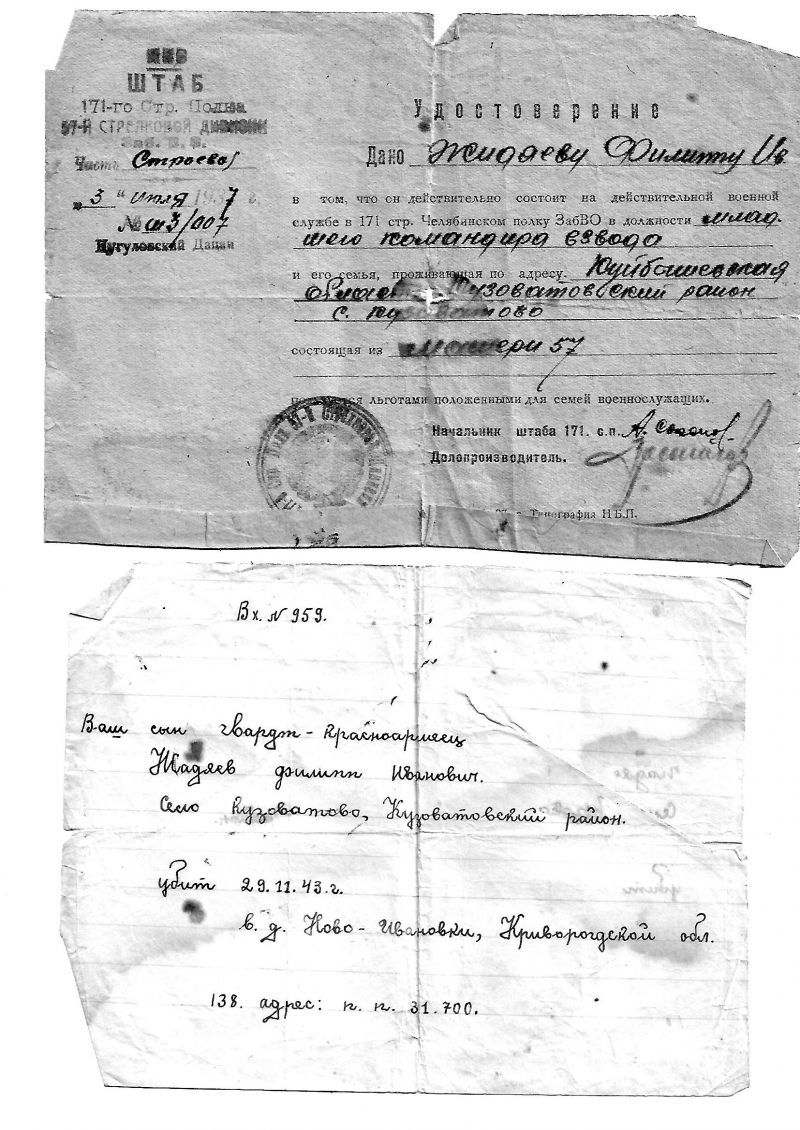 ШТАБ
171-го Стр. Полка
57-Й СТРЕЛКОВОЙ ДИВИЗИИ
Заб. В. О.
Часть Строевая
„ 3 “ июля 1937 г.
№ 3/007
Цугуловский Дацан
Удостоверение
Дано Жидяеву Филиппу Ив
в том, что он действительно состоит на действительной военной
службе в 171 стр. Челябинском полку ЗабВО в должности млад.
шего командира взвода
и его семья, проживающая по адресу. Куйбышевская
область Кузоватовский район
с. Кузоватово
состоящая из матери 57
пользуется льготами положенными для семей военнослужащих.
Начальник штаба 171. с.п.
Долопроизводитель.
Типография Н.Б.П.
Вх. № 959.
Ваш сын гвардт-красноармеец
Жадяев Филипп Иванович.
Село Кузоватово, Кузоватовский район.
убит 29.11.43.г.
в. д. Ново-Ивановки, Криворогдской обл.
138. адрес: п. п. 31.700.